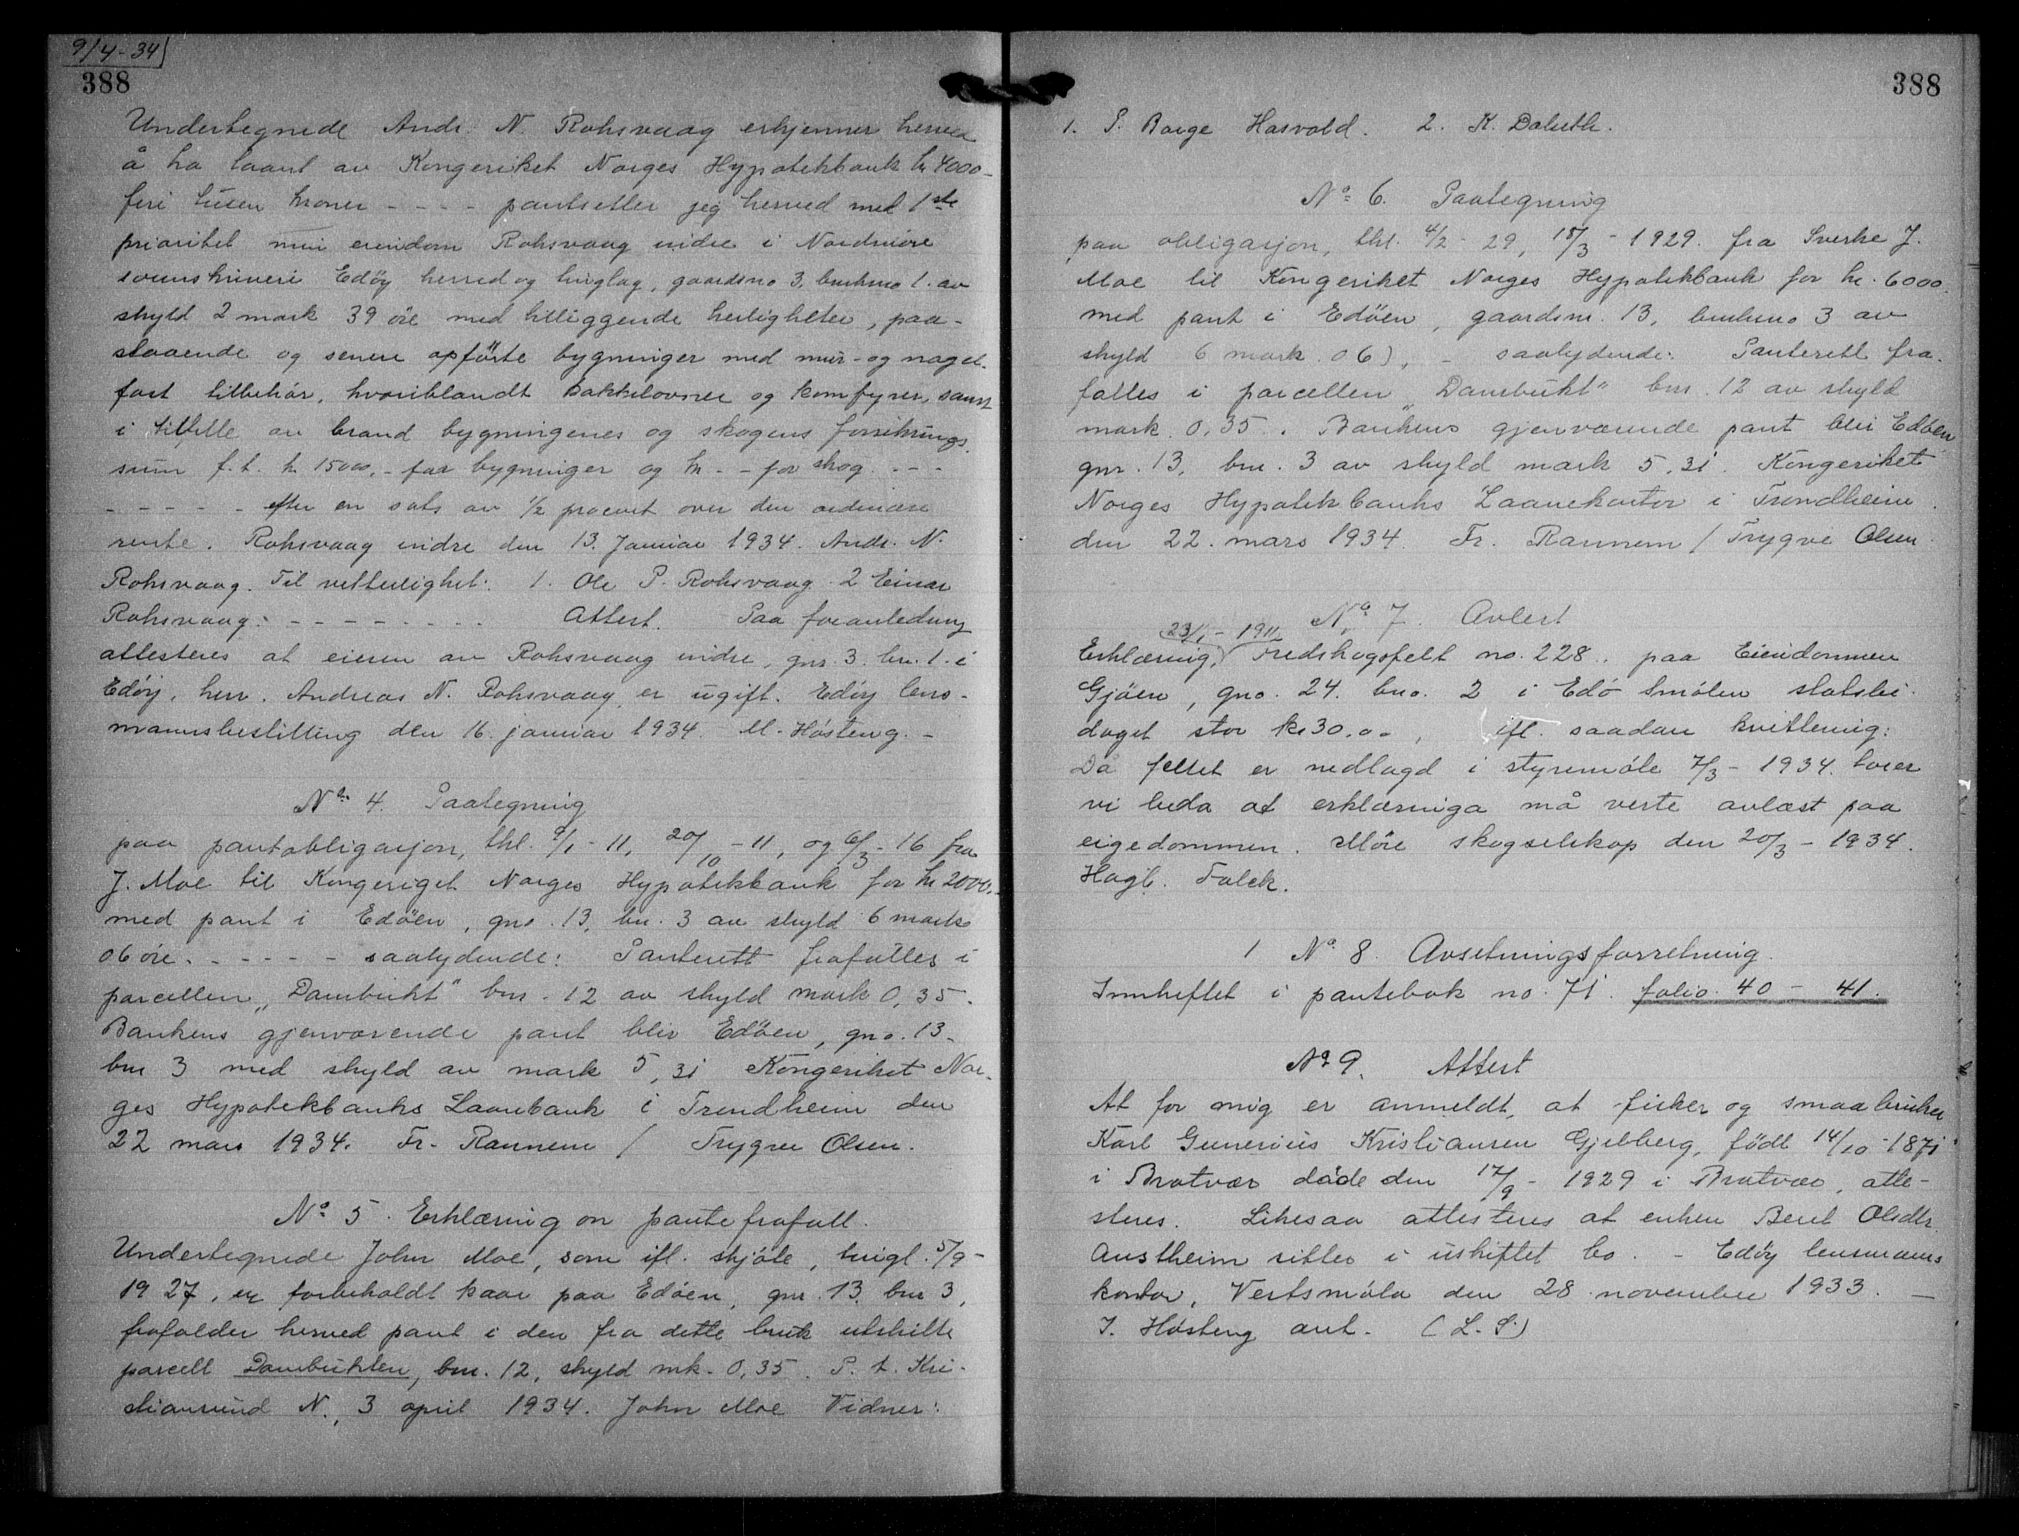 9/4-34
388
Undertegnede Andr. N. Rohsvaag erkjenner herved
å ha laant av Kongeriket Norges Hypotekbank kr 4000-
firi tusen kroner - - - - pantsetter jeg herved med 1ste
prioritet min eiendom Rohsvaag indre i Nordmöre
sorenskriveri Edöy herred og tinglag, gaardsno 3, bruksno 1. av
skyld 2 mark 39 öre med tilliggende herligheter, paa-
staaende og senere opförte bygninger med mur- og nagel-
fast tilbehör, hvoriblandt Bakkelovner og komfyrer, samt
i tilfelle av brand bygningenes og skogens forsikrings-
sum f. t. kr 15000,- for bygninger og kr - - for skog. - - -
- - - - - efter en sats av 1/2 procent over den ordinære
rente. Rohsvaag indre den 13. Januar 1934. Andr. N.
Rohsvaag. Til vitterlighet: 1. Ole P. Rohsvaag. 2 Einar
Rohsvaag. - - - - - - - - Attest. Paa foranledning
attesteres at eieren av Rohsvaag indre, gnr. 3. bn. 1. i
Edöy, herr. Andreas N. Rohsvaag, er ugift. Edöy lens-
mannsbestilling den 16. januar 1934. M. Hösteng. -
No 4. Paategning
paa pantobligasjon, thl. 9/1-11, 20/10-11, og 6/3-16 fra
J. Moe til Kongeriget Norges Hypotekbank for kr 2000.-
med pant i Edöen, gno. 13, bn. 3 av skyld 6 marks
06 öre. - - - - - saalydende: Panterett frafalles i
parcellen „Dambukt" bnr. 12 av skyld mark 0,35.
Bankens gjenværende pant blir Edöen, gno. 13.
bnr 3 med skyld av mark 5,31 Kongeriket Nor-
ges Hypotekbanks Laanebank i Trondheim den
22 mars 1934. Fr. Rannem / Trygve Olsen.
No 5. Erklæring on pantefrafall.
Undertegnede John Moe, som ifl. skjöte, tingl. 5/9-
1927, er forbeholdt kaar paa Edöen, gnr. 13. bnr 3,
frafalder herved pant i den fra dette bruk utskilte
parcell Dambukten, bnr. 12, skyld mk. 0,35. P. t. Kri-
stiansund N., 3 april 1934. John Moe Vidner:
388
1. P. Borge Hasvold. 2. K. Dalseth.
No 6. Paategning
paa obligasjon, thl. 4/2-29, 18/3-1929. fra Sverke J.
Moe til Kongeriket Norges Hypotekbank for kr. 6000.
med pant i Edöen, gaardsnr. 13, bruksno 3 av
skyld 6 mark. 06), - saalydende: Panterett fra-
falles i parcellen „Dambukt" bnr. 12 av skyld
mark. 0,35. Bankens gjenværende pant blir Edöen
gnr. 13. bnr. 3 av skyld mark 5,31. Kongeriket
Norges Hypotekbanks Laanekontor i Trondheim
den 22. mars 1934. Fr. Rannem / Trygve Olsen.
No 7. Avlest
23/1-1911
Erklæring, Fredskogsfelt no. 228. paa Eiendommen
Gjöen, gno. 24. bno. 2 i Edö Smölen statsbi-
daget stor kr 30.00, ifl. saadan kvittering:
Da feltet er nedlagd i styremöte 7/3-1934. torer
vi beda at erklæringa må verte avlæst paa
eigedommen. Möre skogselskap den 20/3-1934.
Hagb. Falck.
1 No 8. Avsetningsforretning.
Innheftet i pantebok no. 71. folio 40 - 41.
No 9. Attest
At for mig er anmeldt, at fisker og smaabruker
Karl Gunerius Kristiansen Gjelberg, födt 14/10-1871
i Bratvær döde den 17/9-1929 i Bratvær, atte-
steres. Likesaa attesteres at enken Beret Olsdtr
Austheim sitter i uskiftet bo. - Edöy lensmanns
kontor, Vestsmöla den 28. november 1933. -
I. Hösteng ant. (L. S)